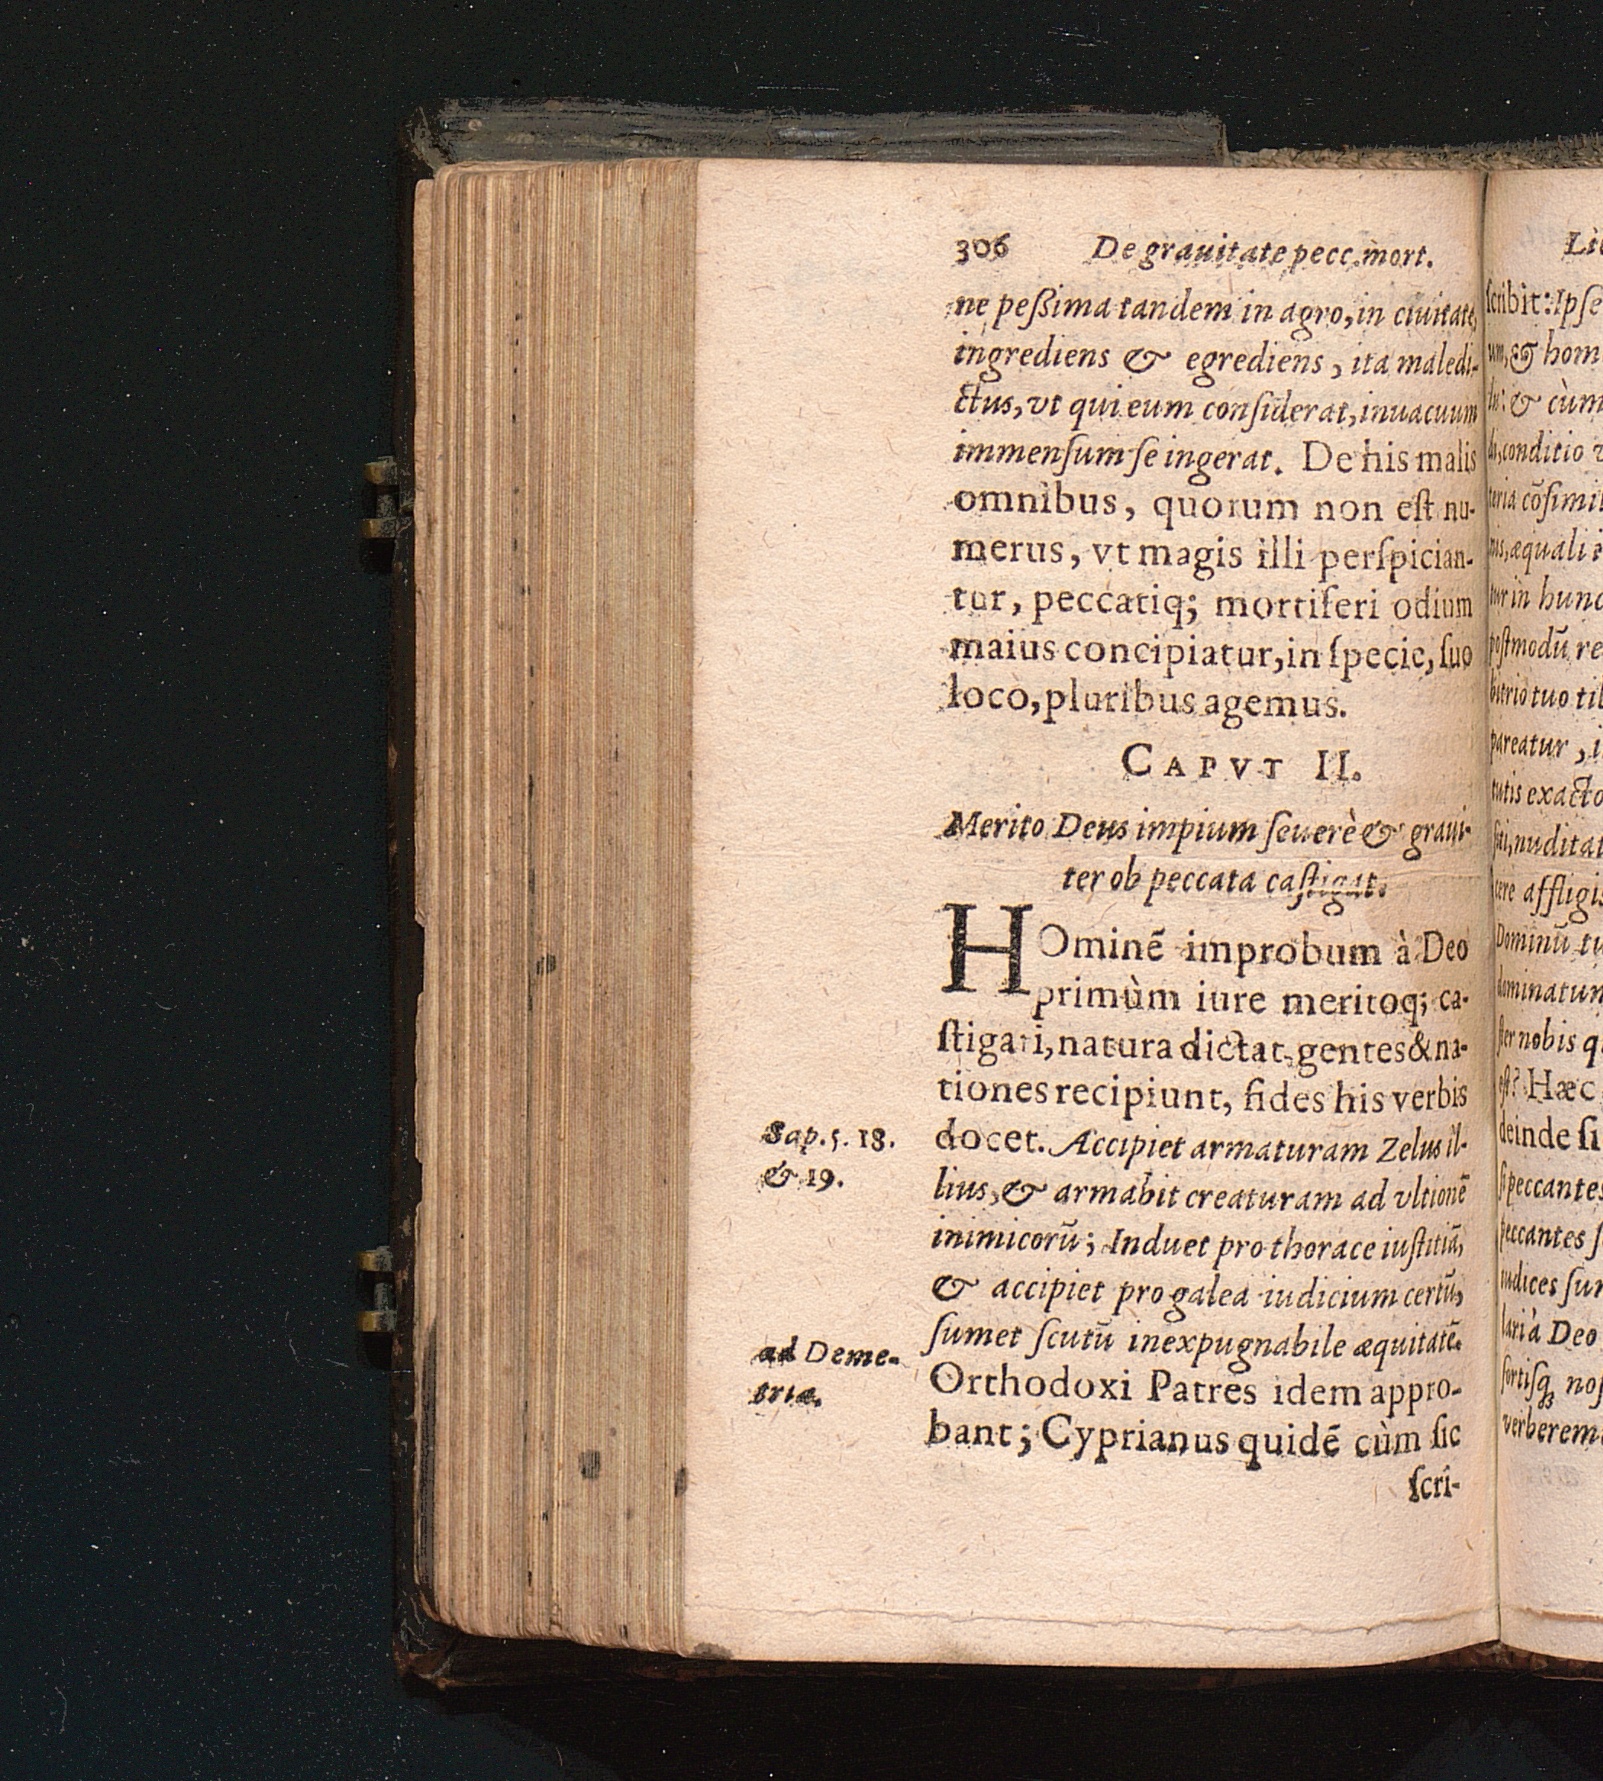 306 De grauitate pecc. mort.
ne peſsima tandem in agro, in ciuitate,
ingrediens & egrediens, ita maledi-
ctus, vt qui eum conſiderat, in vacuum
immenſum ſe ingerat. De his malis
omnibus, quorum non eſt nu-
merus, vt magis illi perſpician-
tur, peccatiq; mortiferi odium
maius concipiatur, in ſpecie, ſuo
loco, pluribus agemus.
CAPVT II.
Merito Deus impium ſeuerè & graui-
ter ob peccata caſtigat.
HOminē improbum à Deo
primùm iure meritoq; ca-
ſtigari, natura dictat, gentes & na-
tiones recipiunt, fides his verbis
Sap. 5. 18.
& 19.
docet. Accipiet armaturam Zelus il-
lius, & armabit creaturam ad vltionē
inimicorū; Induet pro thorace iuſtitiā,
& accipiet pro galea iudicium certū,
ſumet ſcutū inexpugnabile æquitatē.
ad Deme-
triæ.
Orthodoxi Patres idem appro-
bant; Cyprianus quidē cùm ſic
ſcri-
ſcribit: Ipſe
& hom
& cùm
conditio
cōſimil
æquali
in hunc
poſtmodū re
tuo
pareatur,
exacto
nuditat
affligis
Dominū tu
nobis
Hæc
deinde ſi
peccantes
peccantes
à Deo